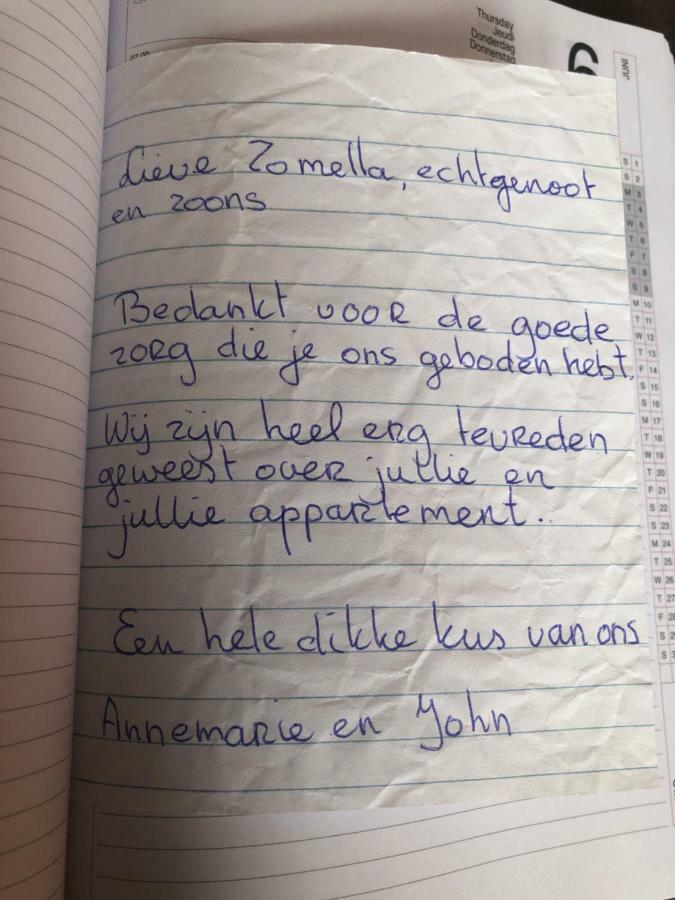 Thursday
Jeudi
Donderdag
Donnerstag
6
JUNI
07.00
Lieve Zomella, echtgenoot
en zoons
Bedankt voor de goede
zorg die je ons geboden hebt.
Wij zijn heel erg tevreden
geweest over jullie en
jullie appartement..
Een hele dikke kus van ons
Annemarie en John
S 1
S 2
M 3
T 4
W 5
T 6
F 7
S 8
S 9
M 10
T 11
W 12
T 13
F 14
S 15
S 16
M 17
T 18
W 19
T 20
F 21
S 22
S 23
M 24
T 25
W 26
T 27
F 28
S 2
S 3